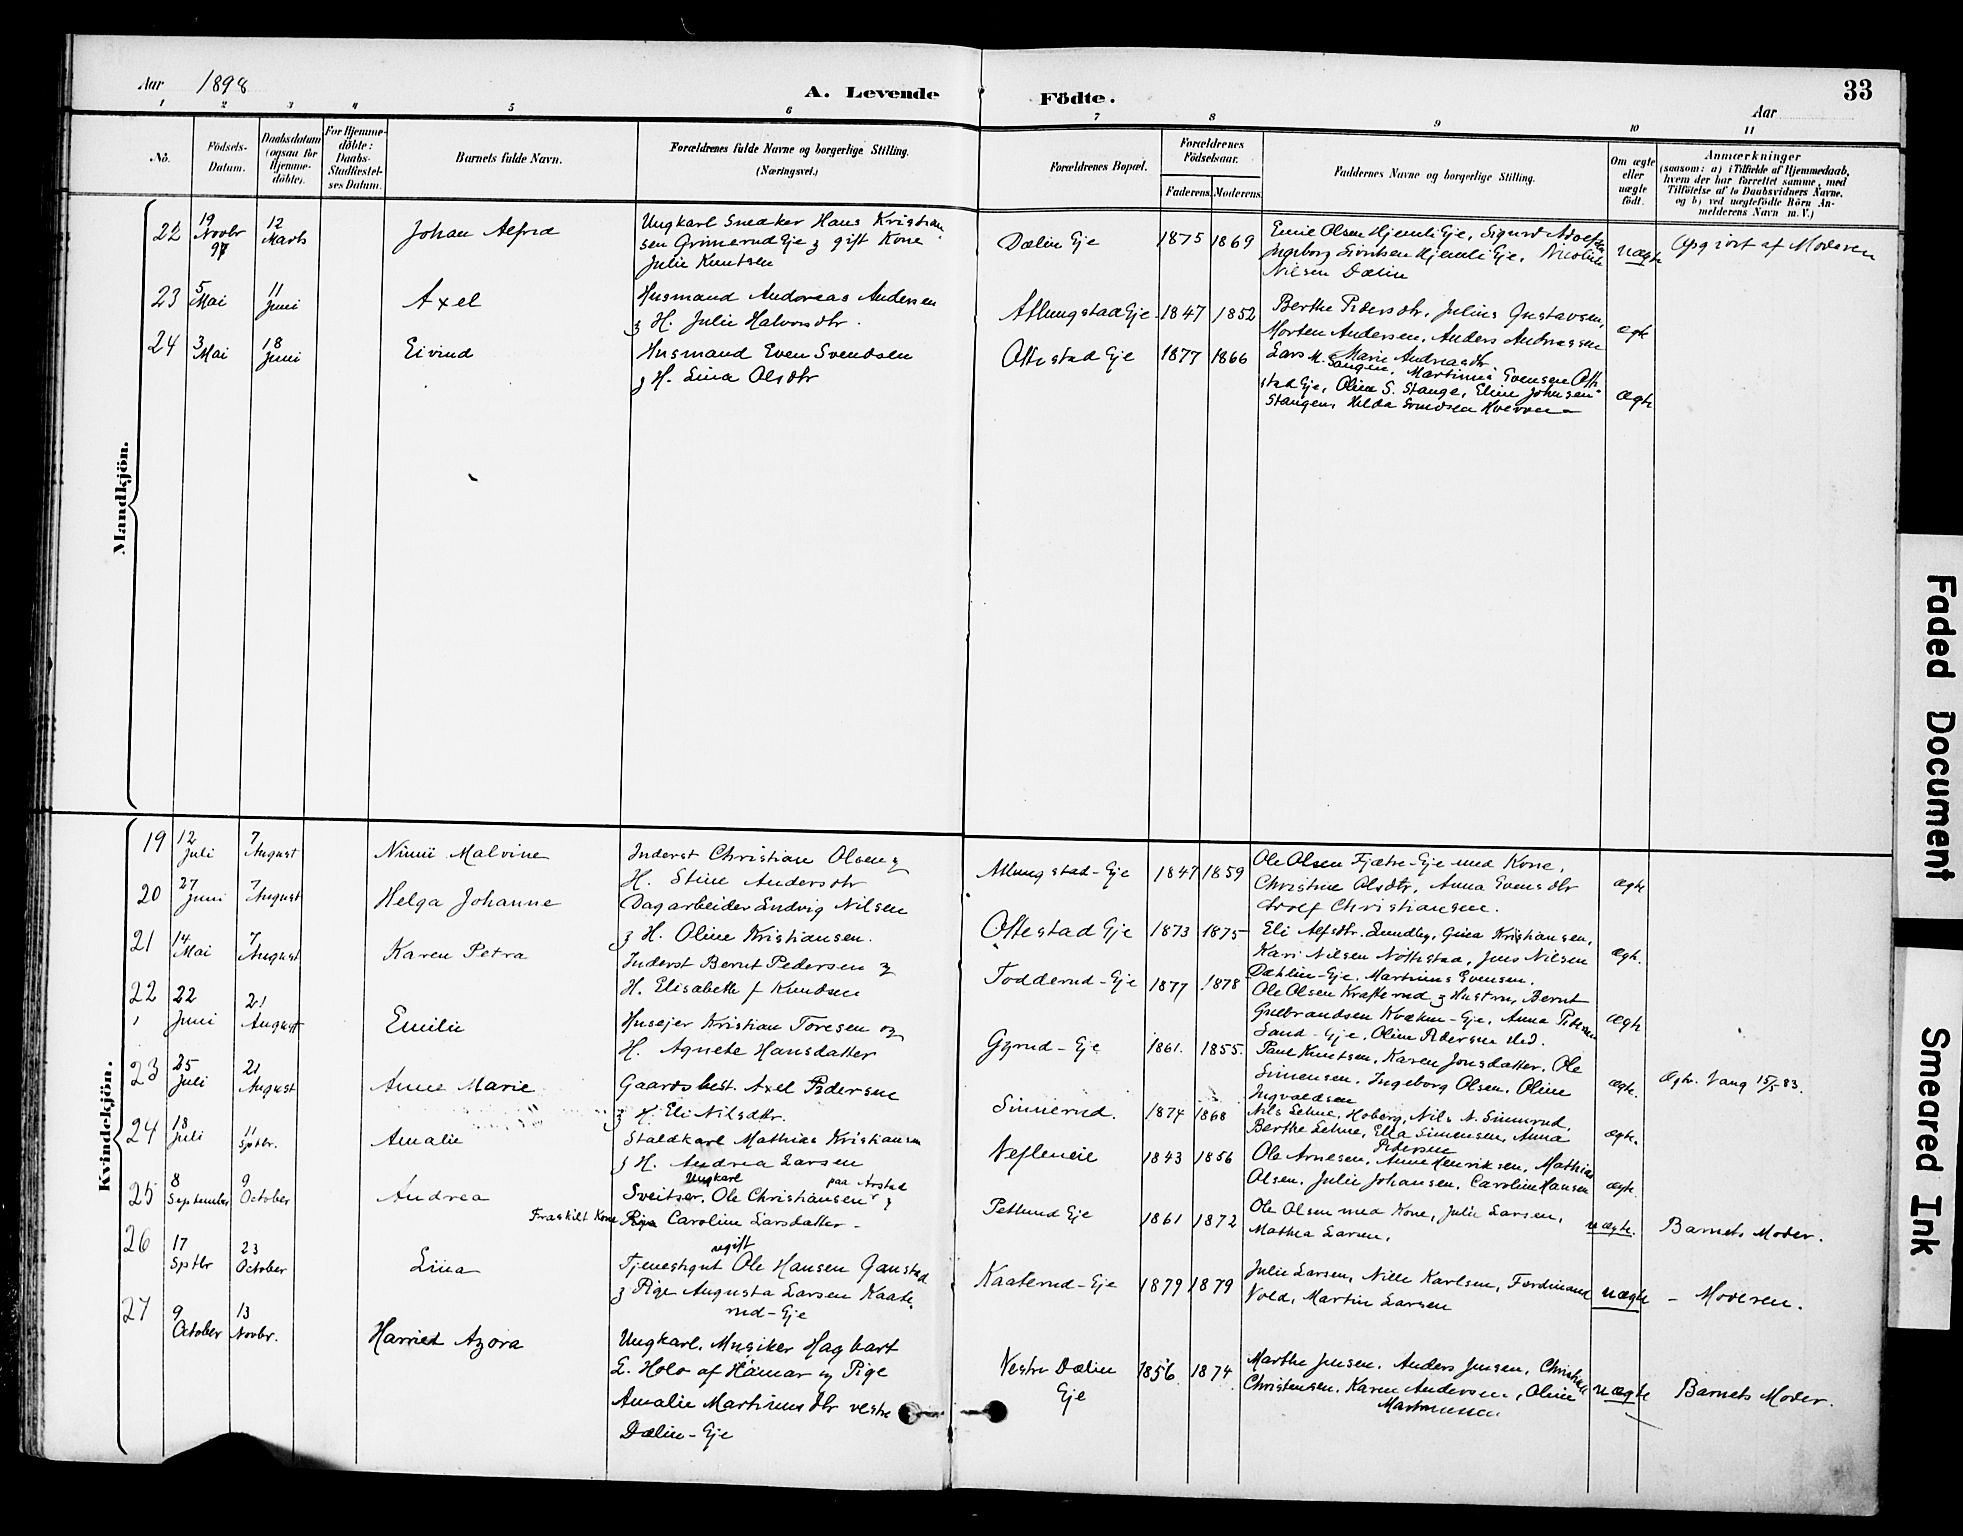 Aar 1898
A. Levende Födte.
33
Aar
1 2 3 4 5 6 7 8 9 10 11
No.
Födsels-Datum.
Daabsdatum (ogsaa for Hjemme-döbte).
For Hjemme-döbte: Daabs-Stadfæstel-ses Datum.
Barnets fulde Navn.
Forældrenes fulde Navne og borgerlige Stilling. (Næringsvei.)
Forældrenes Bopæl.
Forældrenes Födselsaar.
Faderens. Moderens.
Faddernes Navne og borgerlige Stilling.
Om ægte eller uægte födt.
Anmærkninger
(saasom: a) i Tilfælde af Hjemmedaab,
hvem der har forrettet samme, med
Tilföielse af to Daabsvidners Navne.
og b) ved uægtefödte Börn An-
melderens Navn m. V.)
Mandkjön.
22 19 Novbr 97 12 Marts Johan Alfred
Ungkarl Snedker Hans Kristian
sen Grimerud Eje & gift Kone
Julie Knutsen
Dælin Eje 1875 1869
Emil Olsen Hjemli Eje, Sigurd Adolfsen
Ingeborg Hjemli Eje, Nicoline
Nilsen Dælin
uægte Opgivet af Moderen
23 5 Mai 11 Juni Axel
Husmand Andreas Andersen
& H. Julie Halvorsdtr.
Atlungstad Eje 1847 1852
Berthe Pedersdtr, Julius Gustavsen,
Morten Andersen, Anders Andreassen
Marie Andreasdtr.
ægte
24 3 Mai 18 Juni Eivind
Husmand Even Svendsen
& H. Lina Olsdtr
Ottestad Eje 1877 1866
Lars M. Stangen, Martinus Evensen Otte-
stad Eje, Oline S. Stange, Eline Johnsen
Stangen, Hilda Svendsen Hverven
ægte
Kvindekjön.
19 12 Juli 7 August Ninni Malvine
Inderst Christian Olsen &
H. Stine Andersdtr
Atlungstad-Eje 1847 1859
Ole Olsen Fjætre-Eje med Kone,
Christine Olsdtr, Anna Evensdtr
Adolf Christiansen.
ægte
20 27 Juni 7 August Helga Johanne
Dagarbeider Ludvig Nilsen
& H. Oline Kristiansen.
Ottestad Eje 1873 1875
Eli Alfsdtr. Lundby, Gina Kristiansen,
Kari Nilsen Nöttestad, Jens Nilsen
Dæhlin-Eje, Martinus Evensen.
ægte.
21 14 Mai 7 August Karen Petra
Inderst Bernt Pedersen &
H. Elisabeth f Knudsen
Todderud-Eje 1877 1878
Ole Olsen Krafterud & Hustru, Bernt
Gulbrandsen Kvækm-Eje, Anna Pedersen
Sand-Eje, Oline Pedersen sted.
ægte
22 22 Juni 21 August Emilie
Husejer Kristian Toresen og
H. Agnete Hansdatter
Gyrud-Eje 1861. 1855.
Paul Knutsen, Karen Jonsdatter, Ole
Simensen, Ingeborg Olsen, Oline
Ingvaldsen
ægte. Ægtv. Vang 15/5 83.
23 25 Juli 21 August Anne Marie
Gaardsbest. Axel Pedersen
& H. Eli Nilsdtr.
Sinnerud. 1874 1868
Nils Lehne, Hoberg, Nils N. Sinnerud,
Berthe Lehne, Ella Simensen, Anna
Pedersen
ægte.
24 18 Juli 11 Sptbr. Amalie
Staldkarl Mathias Kristiansen
& H. Andrea Larsen
1843 1856
Ole Arnesen, Anne Henriksen, Mathias
Olsen, Julie Johansen, Caroline Hansen
ægte.
25 8 September 9 October Andrea
Ungkarl paa Arstad
Sveitser, Ole Christiansen &
Fraskilt Kone Pige Caroline Larsdatter -
Petlund Eje 1861 1872
Ole Olsen med Kone, Julie Larsen,
Mathea Larsen,
uægte. Barnets Moder.
26 17 Sptbr 23 October Lina
ugift
Tjenestgut Ole Hansen Gaustad
& Pige Augusta Larsen Kaate-
rud-Eje
Kaaterud-Eje 1879 1879
Julie Larsen, Nille Karlsen, Ferdinand
Vold, Martin Larsen
uægte - Moderen.
27 9 October 13 Novbr. Harriet Azora
Ungkarl, Musiker Hagbart
L. Holo af Hamar og Pige
Amalie Martinusdtr vestre
Dælin-Eje
Vestre Dælin Eje 1856 1874
Marthe Jensen, Anders Jensen, Christian
Christensen, Karen Andersen, Oline
Martinussen
uægte Barnets Moder.
Faded Document
Smeared Ink